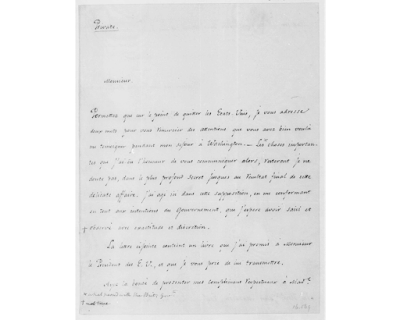 Privée.
Monsieur
Permettez que sur le point de quitter les Etats Unis, je vous adresse
deux mots pour vous remercier des attentions que vous avez bien voulu
me témoigner pendant mon séjour à Washington. — Les choses importan-
tes que j'ai eu l'honneur de vous communiquer alors, resteront je ne
doute pas, dans le plus profond secret jusques au résultat final de cette
délicate affaire. J'ai agi dans cette supposition, en me conformant
en tout aux intentions du Gouvernement, que j'espère avoir saisi et
observé avec exactitude et discrétion.
La lettre ci-jointe contient un livre que j'ai promis à Monsieur
le Président des E. U. et que je vous prie de lui transmettre.
Ayez la bonté de présenter mes complimens respectueux à Mad.e